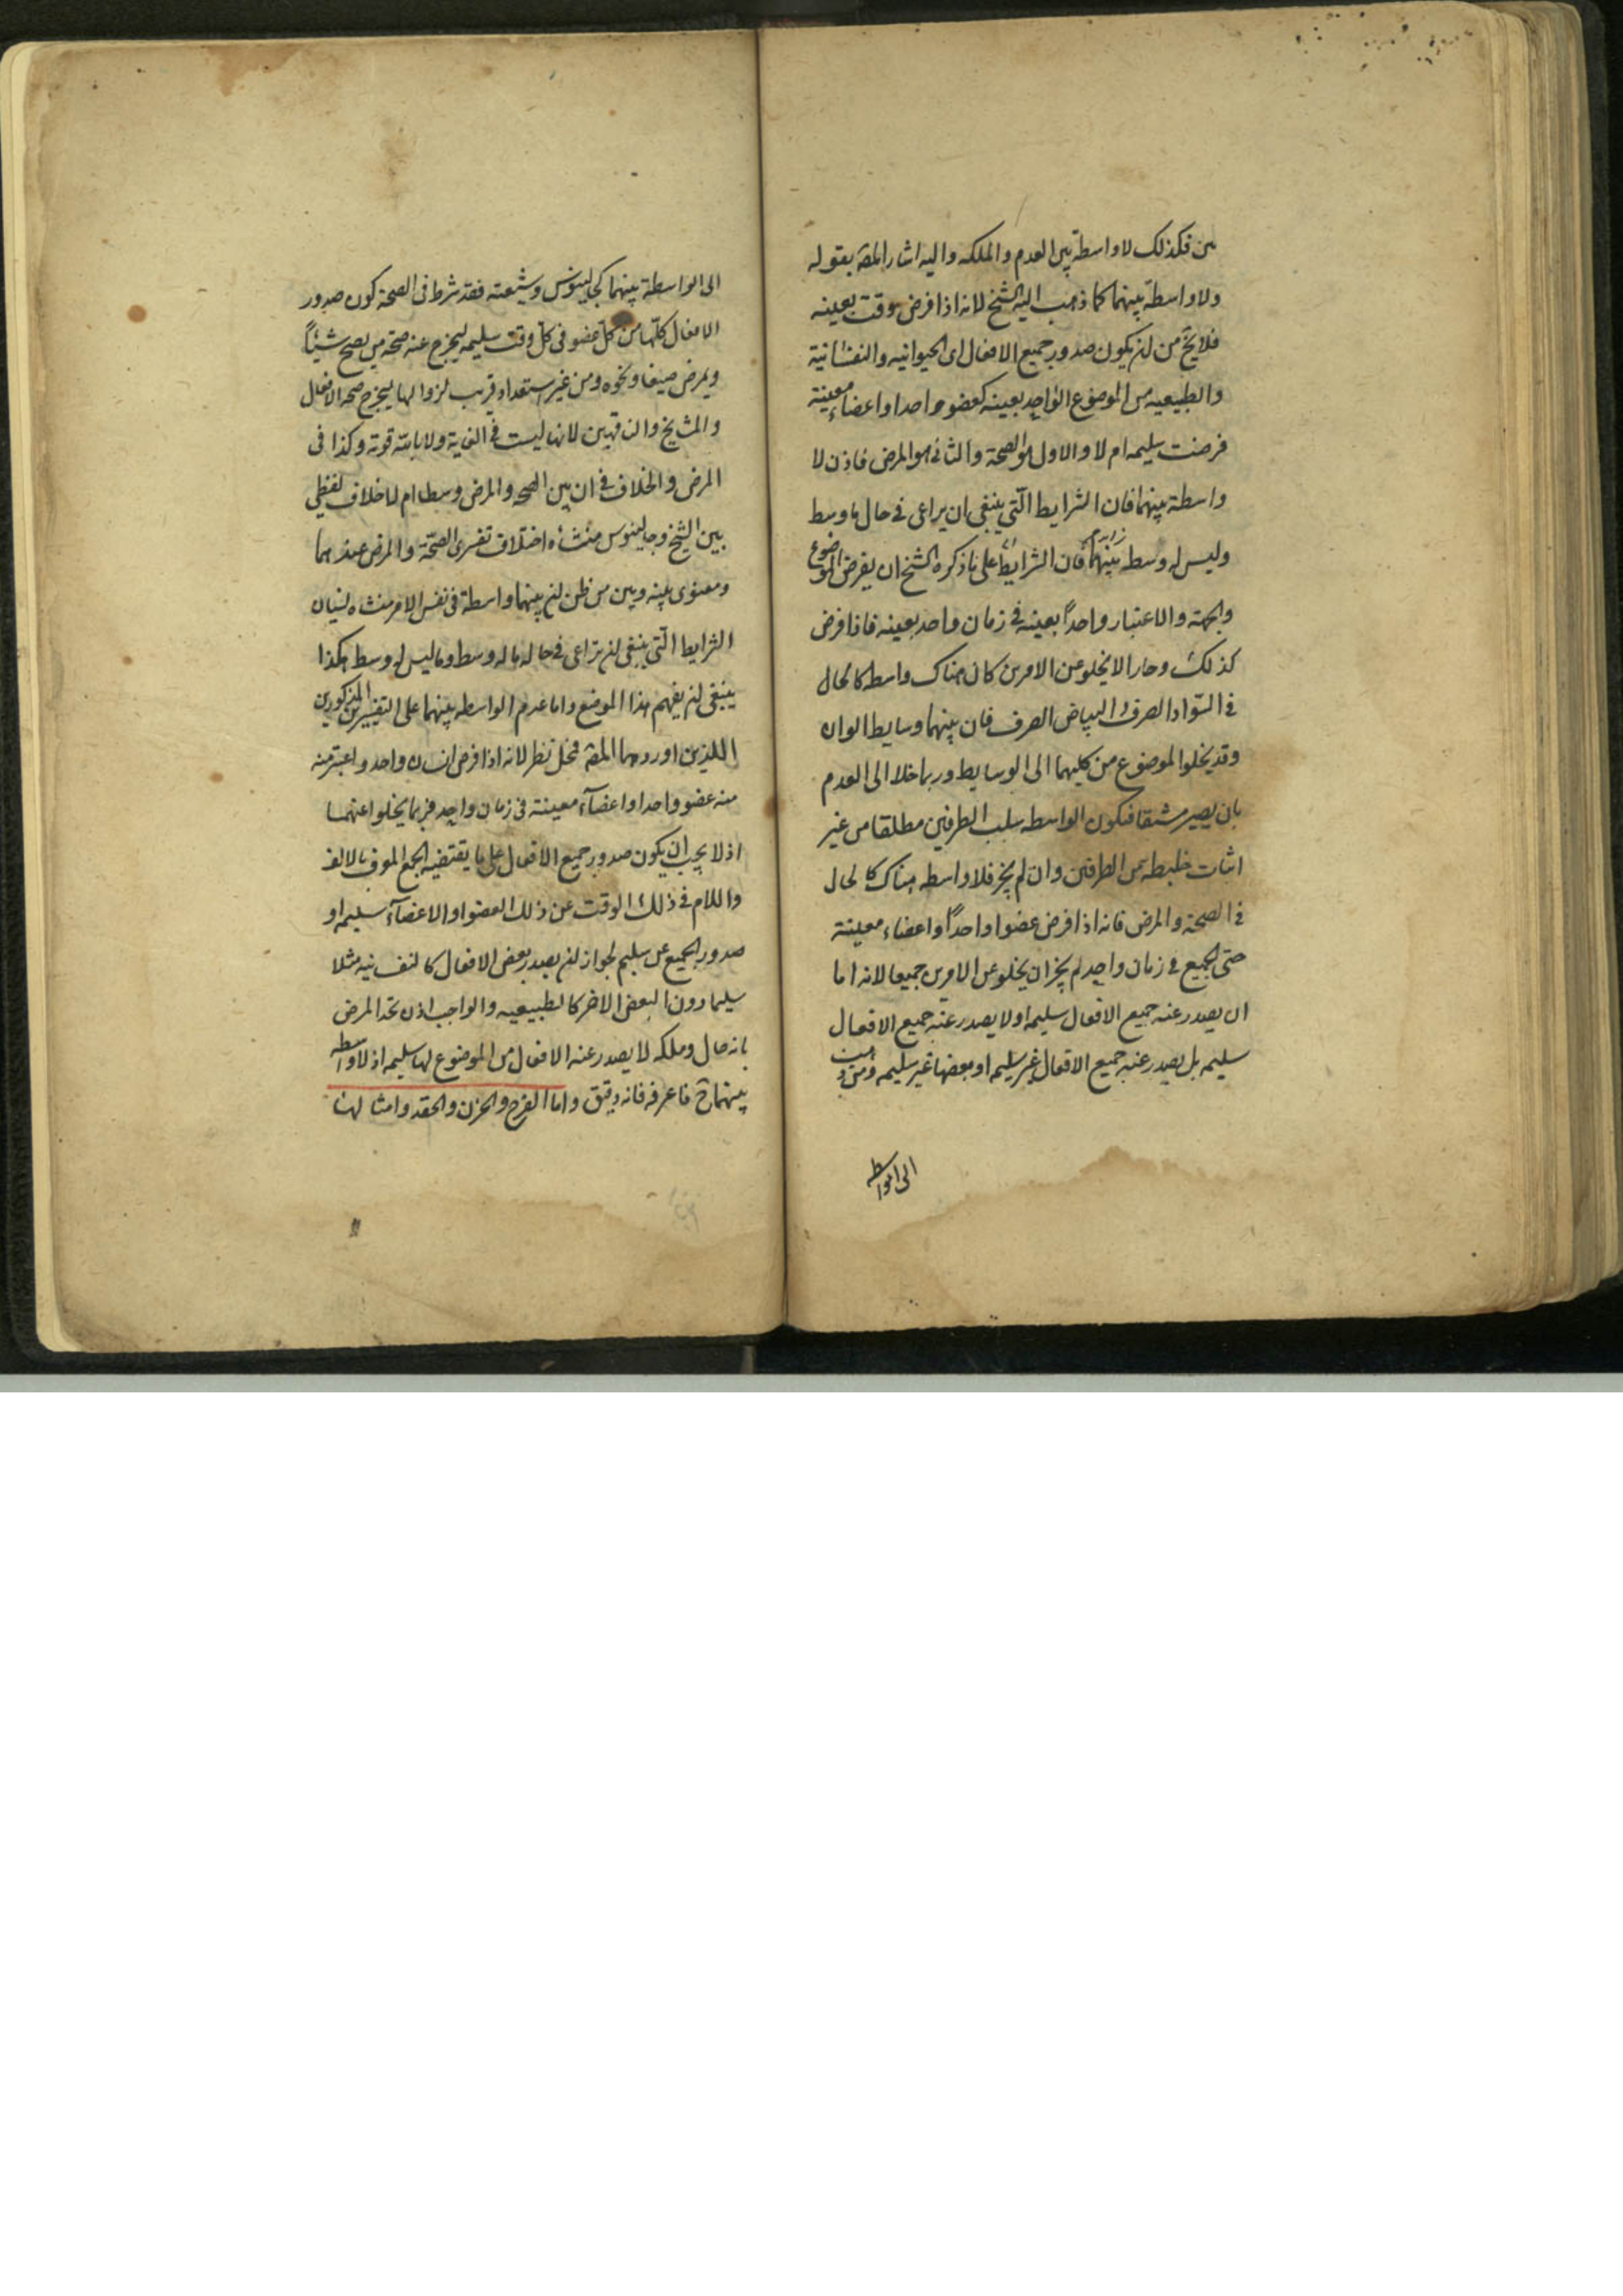 من فكذلك لا واسطة بين العدم والملكه واليه اشار المصہ بقوله
ولا واسطة بينهما كما ذهب اليه الشيخ لانه اذا فرض وقت بعينه
فلا يخ من ان يكون صدور جميع الافعال اى الحيوانيه والنفسانية
والطبيعيه من الموضوع الواحد بعينه كعضو واحد او اعضاء معينة
فرضت سليمه ام لا والاول هو الصحة والثانى هو المرض فاذن لا
واسطة بينهما فان الشرايط التى ينبغى ان يراعى فى حال ما وسط
وليس له وسط بينهما فان الشرايط على ما ذكره الشيخ ان يفرض الموضوع
والجهة والاعتبار واحداً بعينه فى زمان واحد بعينه فاذا فرض
كذلك وجاز الا يخلو عن الامرين كان هناك واسطه كالحال
فى السّواد الصرف والبياض الصرف فان بينهما وسايط الوان
وقد يخلوا الموضوع من كليهما الى الوسايط وربما خلا الى العدم
بان يصير مشفا فتكون الواسطه سلب الطرفين مطلقا من غير
اثبات خليطه من الطرفين وان لم يجز فلا واسطه هناك كالحال
فى الصحة والمرض فانه اذا فرض عضوا واحداً او اعضاء معينة
حتى الجميع فى زمان واحد لم يجز ان يخلو عن الامرين جميعا لانه اما
ان يصدر عنه جميع الافعال سليمه او لا يصدر عنه جميع الافعال
سليمه بل يصدر عنه جميع الافعال غير سليمه او بعضها غير سليمه ومن ذهب
الى الواسطه
الى الواسطة بينهما كجالينوس وشيعته فقد شرط فى الصحة كون صدور
الافعال كلّها من كلّ عضو فى كلّ وقت سليمه ليخرج عنه صحة من يصح شتاءً
ويمرض صيفا ونحوه ومن غير استعداد قريب لزوالها ليخرج صحه الاطفال
والمشايخ والناقهين لانها ليست فى الغاية ولا ثابتة قوية وكذا فى
المرض والخلاف فى ان بين الصحه والمرض وسطا ام لا خلاف لفظى
بين الشيخ وجالينوس منشأه اختلاف تفسيرى الصحّة والمرض عندهما
ومعنوى بينه وبين من ظن ان بينهما واسطة فى نفس الامر منشأه نسيان
الشرايط الّتى ينبغى ان تراعى فى حال ما له وسط وما ليس له وسط هكذا
ينبغى ان يفهم هذا الموضع واما عدم الواسطه بينهما على التفسيرين المذكورين
اللذين اوردهما المصہ فمحل نظر لانه اذا فرض انسان واحد واعتبر منه
منه عضو واحد او اعضآء معينة فى زمان واحد فربما يخلوا عنهما
اذ لا يجب ان يكون صدور جميع الافعال على ما يقتضيه الجمع المعرف بالالف
واللام فى ذلك الوقت عن ذلك العضو او الاعضآء سليمه او
صدور الجميع غير سليم لجواز ان يصدر بعض الافعال كالنفسانيه مثلا
سليما دون البعض الاخر كالطبيعيه والواجب اذن تحد المرض
بانه حال وملكه لا يصدر عنه الافعال من الموضوع لها سليمه اذ لا واسطه
بينهما ح فاعرفه فانه دقيق واما الفرح والحزن والحقد وامثالها